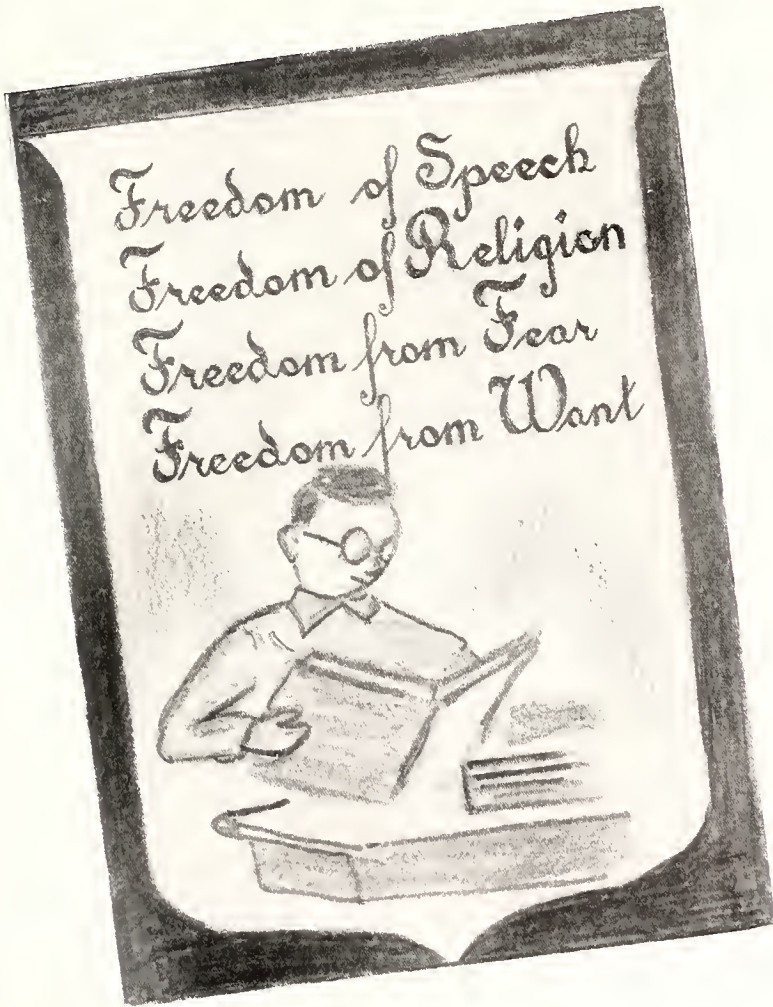 Freedom of Speech
Freedom of Religion
Freedom from Fear
Freedom from Want